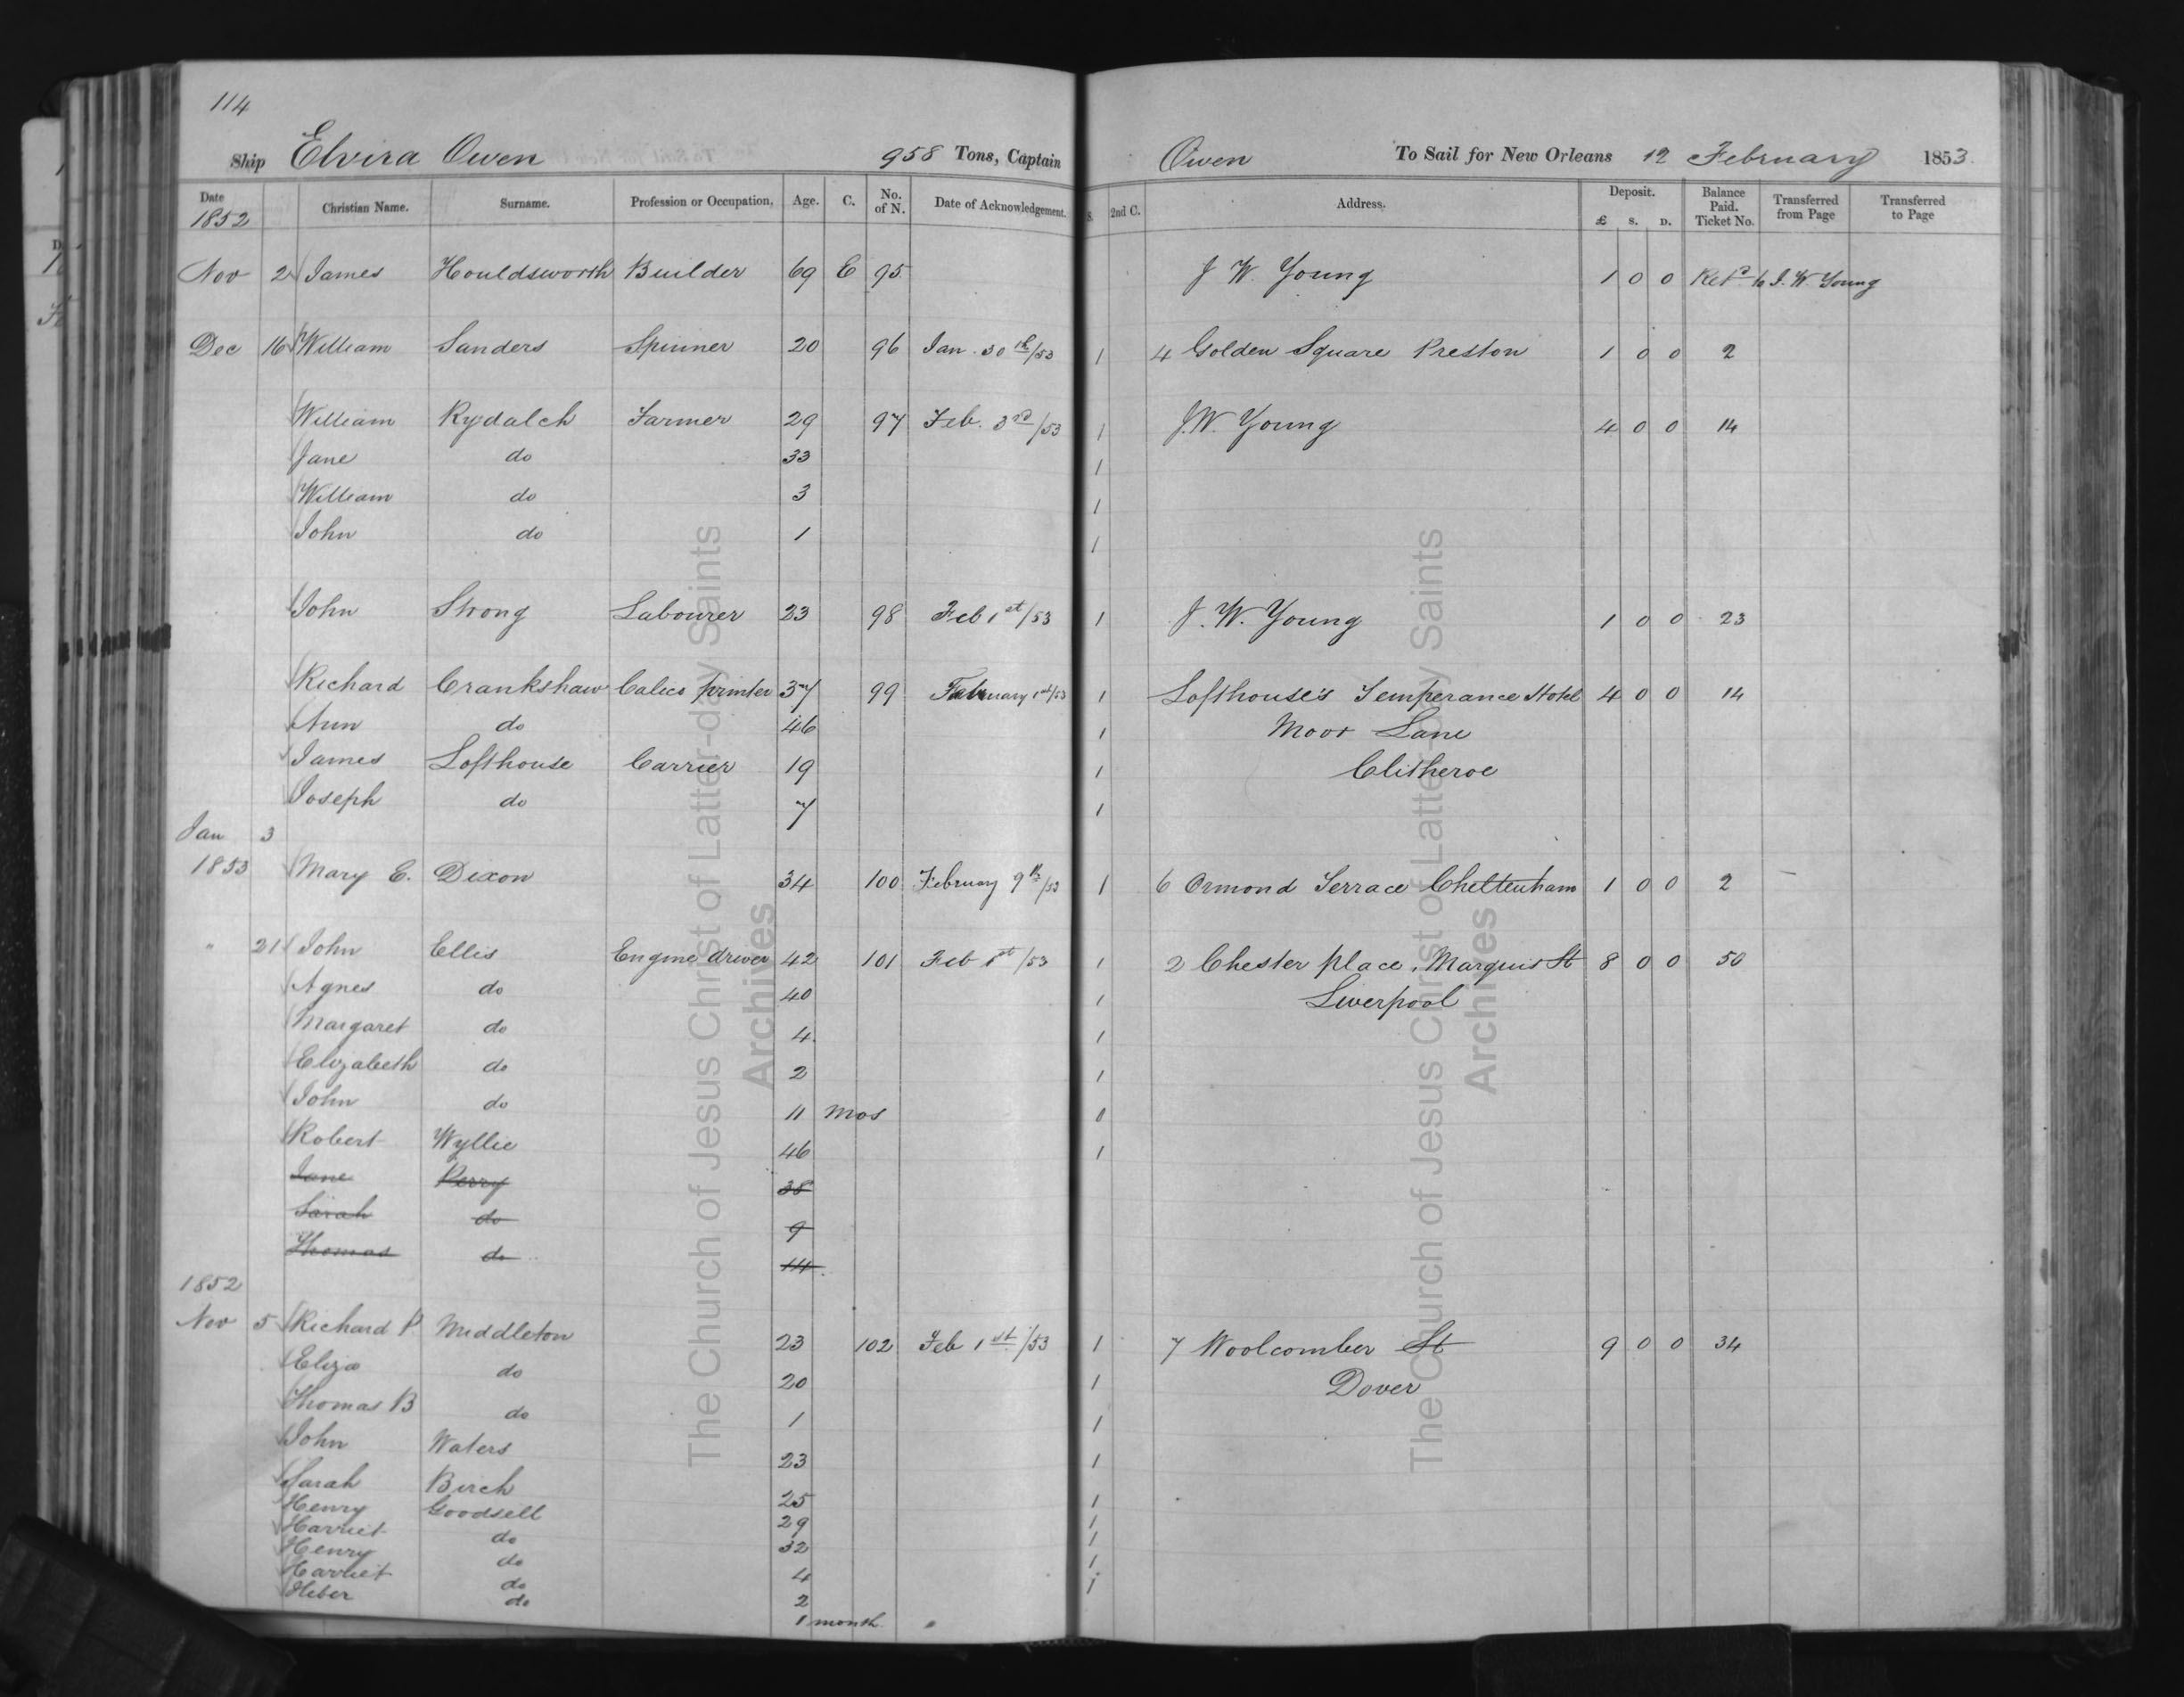 114
Ship Elvira Owen 958 Tons, Captain Owen To Sail for New Orleans 12 February 1853
Date 1852 Christian Name. Surname. Profession or Occupation. Age. C. No. of N. Date of Acknowledgement. S. 2nd C. Address. Deposit. £ S. D. Balance Paid. Ticket No. Transferred from Page Transferred to Page
Nov 2 James Houldsworth Builder 69 E 95 J W Young 1 0 0 Retd to J. W. Young
Dec 16 William Sanders Spinner 20 96 Jan. 30th/53 1 4 Golden Square Preston 1 0 0 2
William Rydalch Farmer 29 97 Feb. 3rd/53 1 J.W. Young 4 0 0 14
Jane do 33 1
William do 3 1
John do 1 1
John Strong Labourer 23 98 Feb 1st/53 1 J. W. Young 1 0 0 23
Richard Crankshaw Calico printer 37 99 February 1st/53 1 Lofthouse's Temperance Hotel 4 0 0 14
Ann do 46 1 Moor Lane
James Lofthouse Carrier 19 1 Clitheroe
Joseph do 7 1
Jan 3
1853 Mary E. Dixon 34 100 February 9th/53 1 6 Ormond Terrace Cheltenham 1 0 0 2
" 21 John Ellis Engine driver 42 101 Feb 1st/53 1 2 Chester place, Marquis St 8 0 0 50
Agnes do 40 1 Liverpool
Margaret do 4 1
Elizabeth do 2 1
John do 11 mos 0
Robert Wyllie 46 1
Jane Perry 38
Sarah do 9
Thomas do 14
1852
Nov 5 Richard P. Middleton 23 102 Feb 1st/53 1 7 Woolcomber St 9 0 0 34
Eliza do 20 1 Dover
Thomas B do 1 1
John Waters 23 1
Sarah Birch 25 1
Henry Goodsell 29 1
Harriet do 32 1
Henry do 4 1
Harriet do 2 1
Heber do 1 month
The Church of Jesus Christ of Latter-day Saints
Archives
The Church of Jesus Christ of Latter-day Saints
Archives